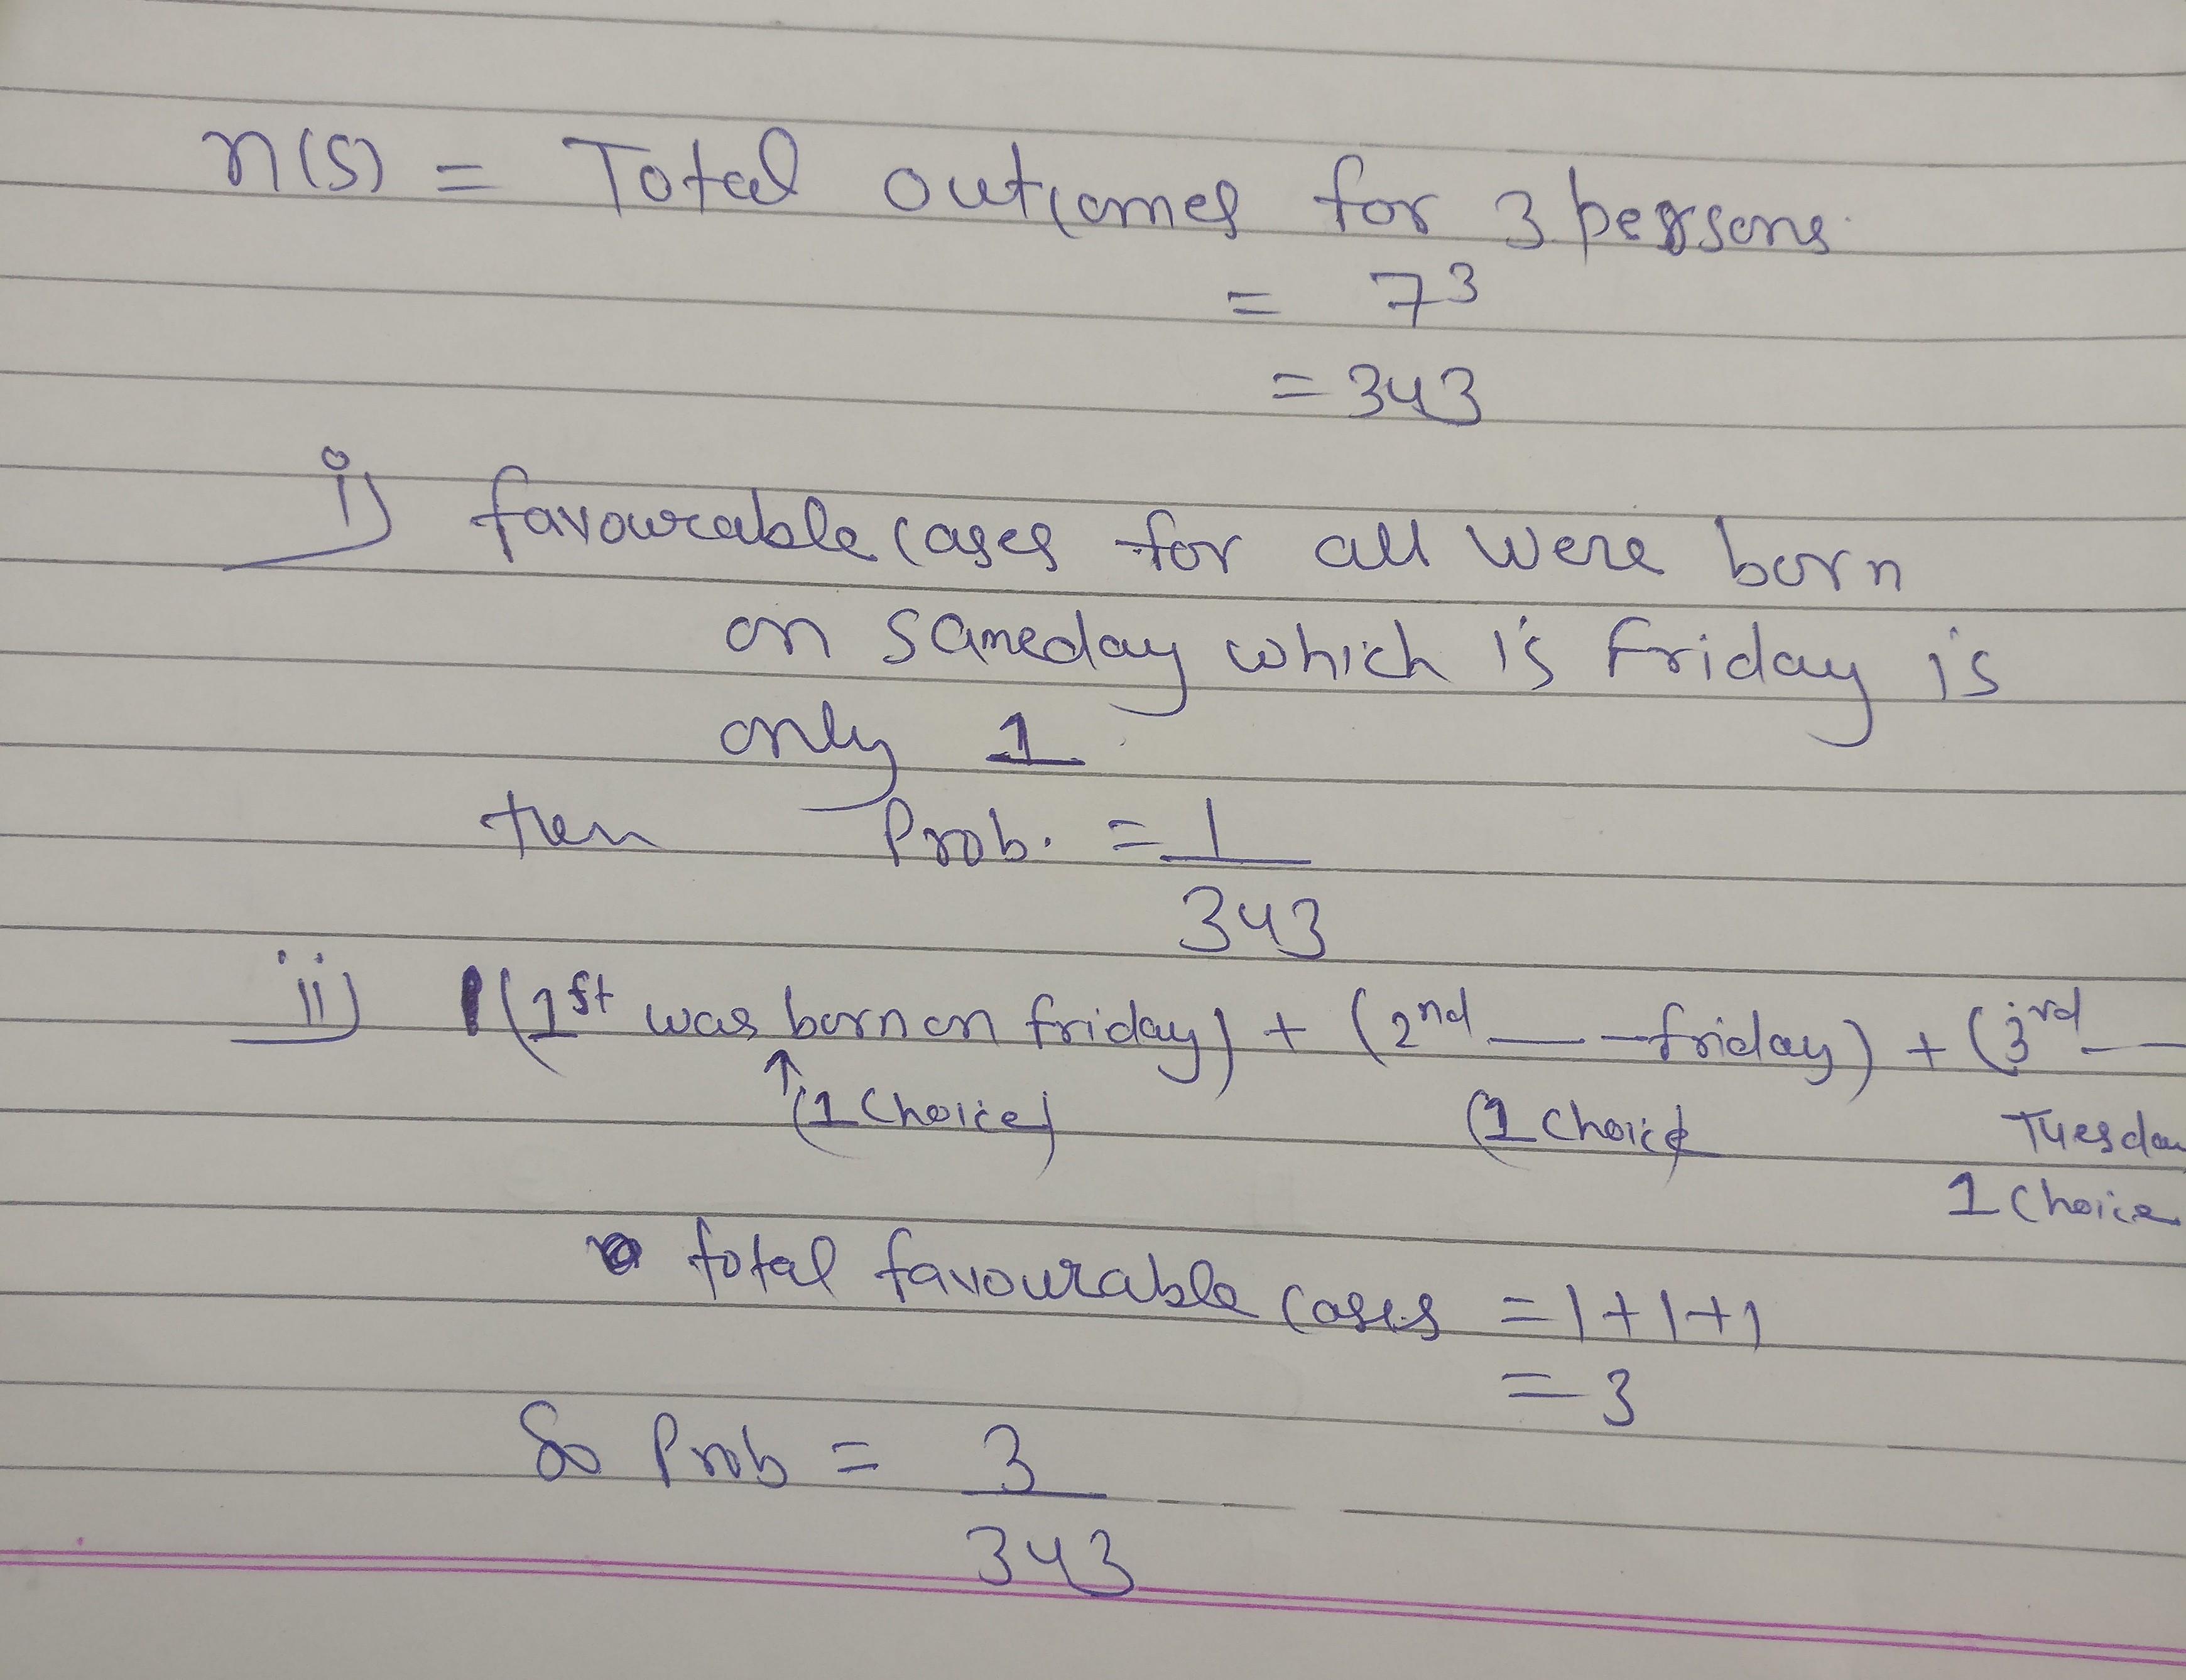 n(S) = Total outcomes for 3 persons
= 7³
= 343
i) favourable cases for all were born
on sameday which is Friday is
only 1
then Prob. = 1/343
ii) (1st was born on friday) + (2nd — - friday) + (3rd —
(1 Choice) (1 Choice Tuesda
1 Choice
total favourable cases = 1+1+1
= 3
So Prob = 3/343